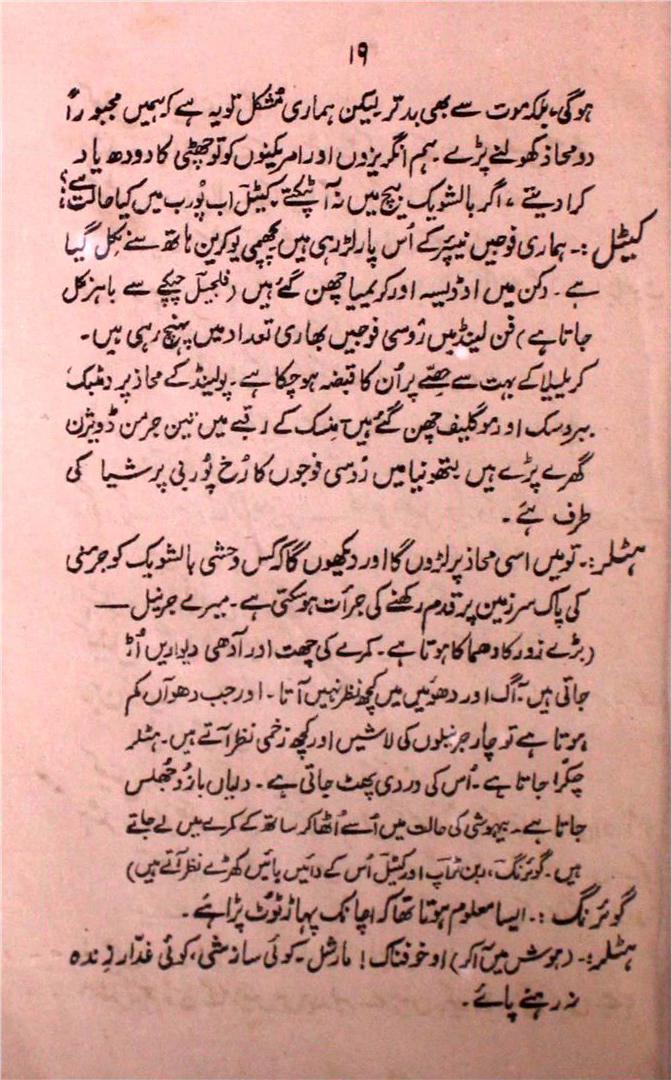 ۱۹
ہوگی، بلکہ موت سے بھی بدتر۔ لیکن ہماری مشکل تو یہ ہے کہ ہمیں مجبوراً
دو محاذ کھولنے پڑے۔ ہم انگریزوں اور امریکینوں کو تو چھٹی کا دودھ یاد
کرا دیتے، اگر بالشویک بیچ میں نہ آ ٹپکتے۔ کیٹل اب پُورب میں کیا حالت ہے؟
کیٹل:۔ ہماری فوجیں نیپر کے اُس پار لڑ رہی ہیں پچھمی یوکرین ہاتھ سے نکل گیا
ہے۔ دکن میں اوڈیسہ اور کریمیا چھن گئے ہیں (فلجیل چپکے سے باہر نکل
جاتا ہے) فن لینڈ میں رُوسی فوجیں بھاری تعداد میں پہنچ رہی ہیں۔
کریلیا کے بہت سے حصّے پر اُن کا قبضہ ہو چکا ہے۔ پولینڈ کے محاذ پر وٹبک
ببروسک اور موگلیف چھن گئے ہیں۔ منسک کے رقبے میں تین جرمن ڈویژن
گھرے پڑے ہیں لتھونیا میں رُوسی فوجوں کا رُخ پُوربی پرشیا کی
طرف ہے۔
ہٹلر:۔ تو میں اسی محاذ پر لڑوں گا اور دیکھوں گا کہ کس وحشی بالشویک کو جرمنی
کی پاک سرزمین پر قدم رکھنے کی جرأت ہو سکتی ہے۔ میرے جرنیل —
(بڑے زور کا دھماکا ہوتا ہے۔ کمرے کی چھت اور آدھی دیواریں اُڑ
جاتی ہیں۔ آگ اور دھوئیں میں کچھ نظر نہیں آتا۔ اور جب دھوآں کم
ہوتا ہے تو چار جرنیلوں کی لاشیں اور کچھ زخمی نظر آتے ہیں۔ ہٹلر
چکرا جاتا ہے۔ اُس کی وردی پھٹ جاتی ہے۔ دایاں بازو جُھلس
جاتا ہے۔ بیہوشی کی حالت میں اُسے اُٹھا کر ساتھ کے کمرے میں لے جاتے
ہیں۔ گوئرنگ، ربن ٹراپ اور کیٹل اُس کے دائیں بائیں کھڑے نظر آتے ہیں)
گوئرنگ:۔ ایسا معلوم ہوتا تھا کہ اچانک پہاڑ ٹوٹ پڑا ہے۔
ہٹلر:۔ (جوش میں آکر) او خوفناک! مارشل۔ کوئی سازشی، کوئی غدّار زندہ
نہ رہنے پائے۔